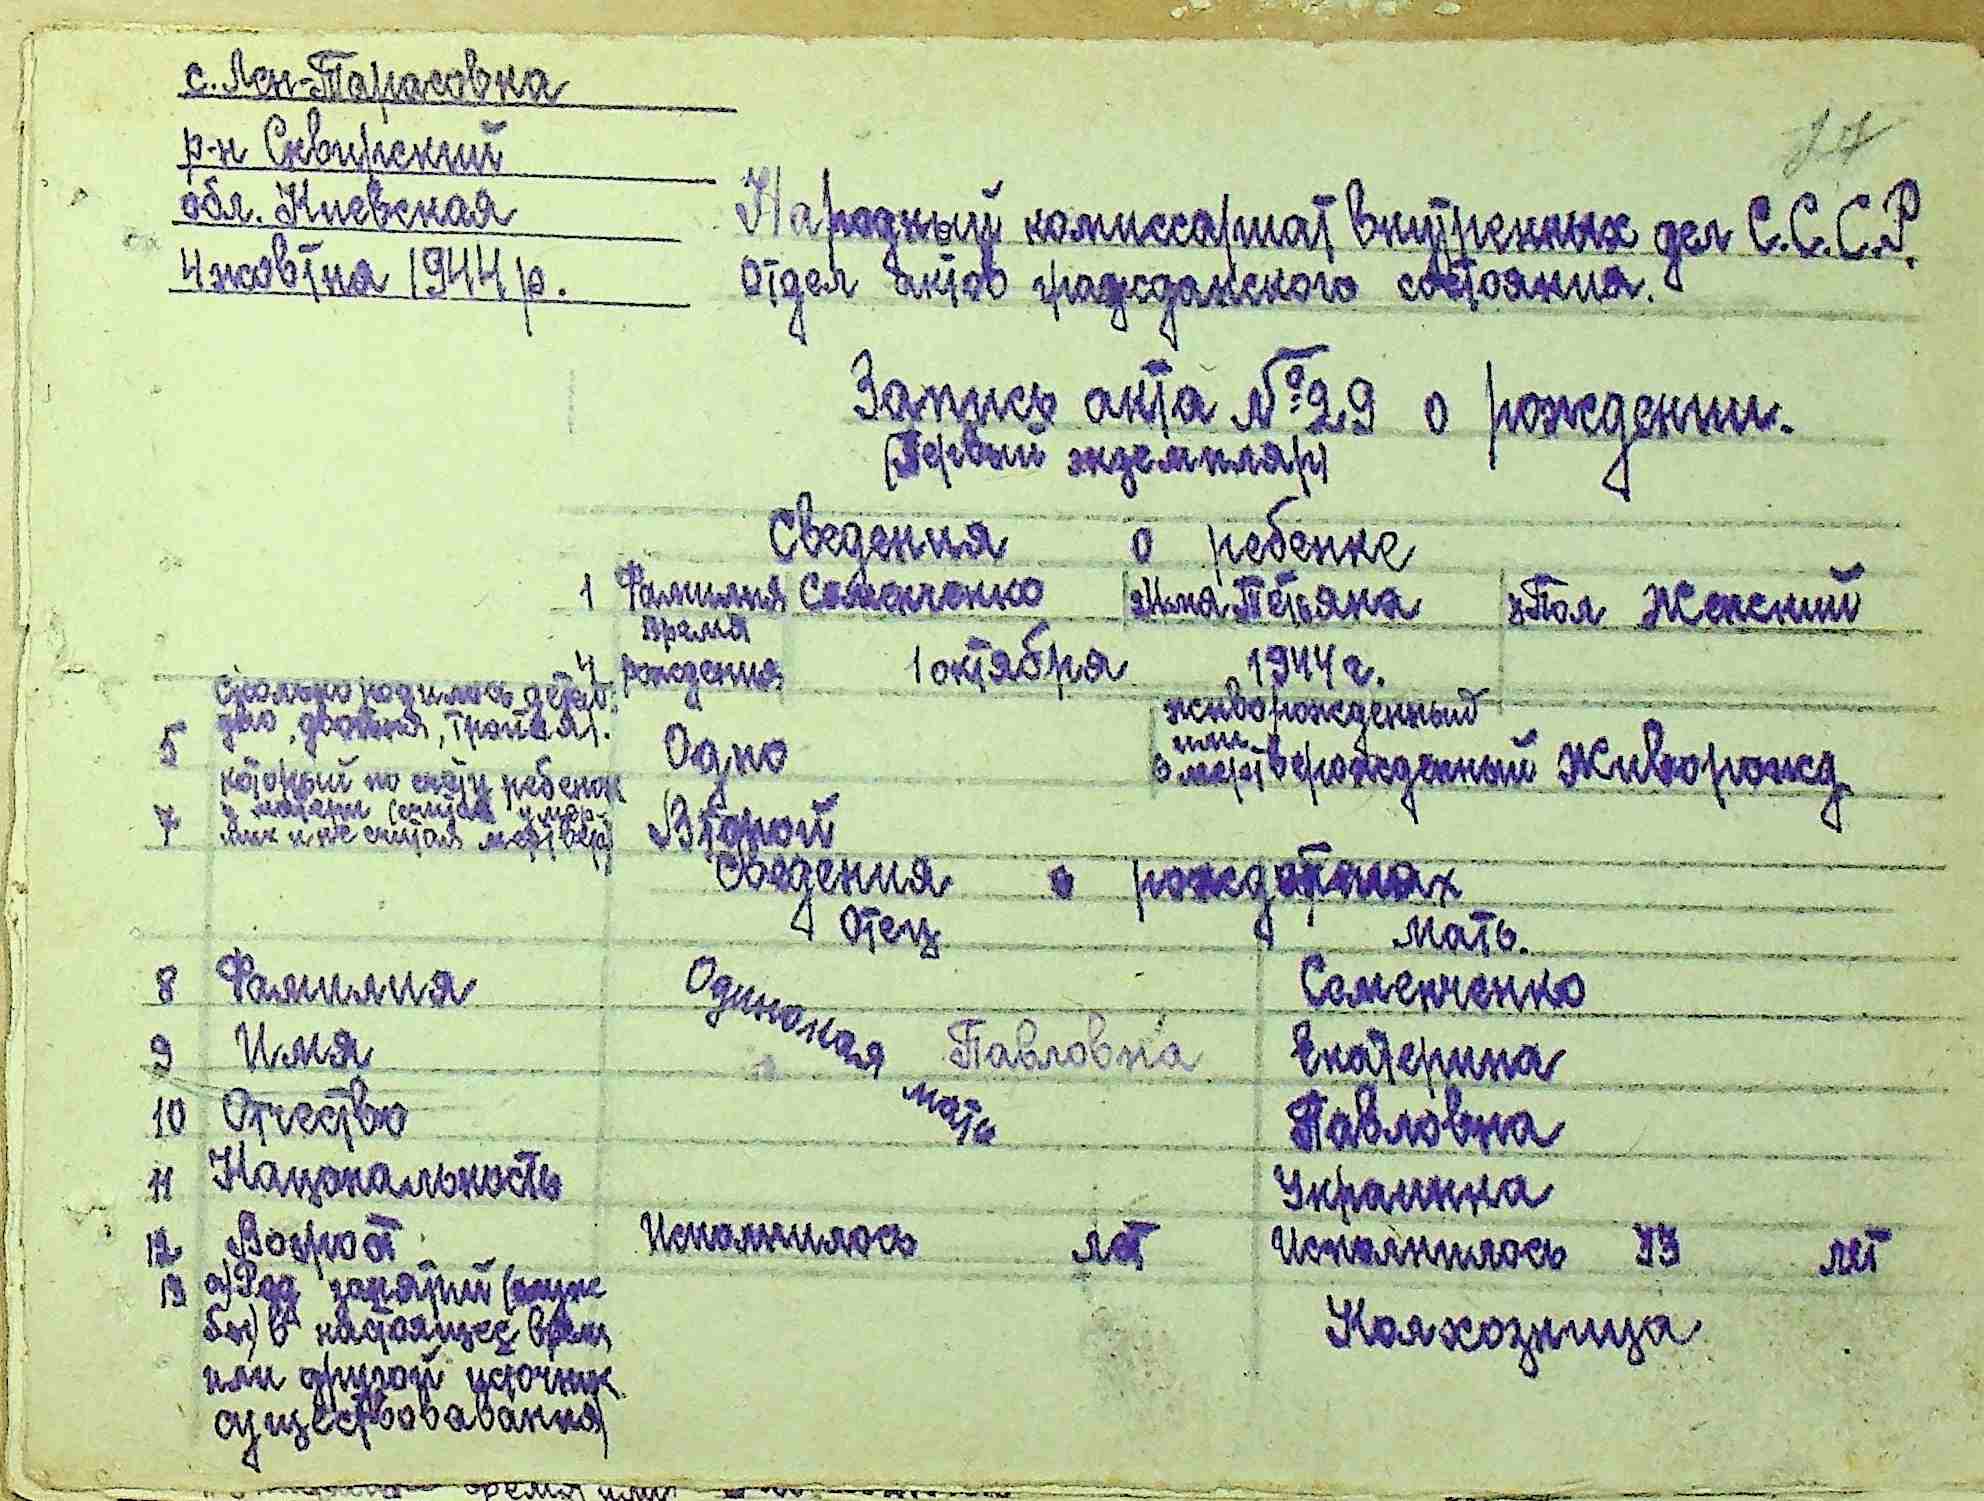 с. Лен-Тарасовка
р-н Сквирский
обл. Киевская
4 жовтня 1944 р.
27
Народный комиссариат внутренных дел С.С.С.Р.
Отдел актов гражданского состояния.
Запись акта № 29 о рождении.
(Первый экземпляр)
Сведения о ребенке
1 Фамилия Семенченко 2 Имя Татьяна 3 Пол Женский
4 время рождения 1 октября 1944 г.
5 сколько родилось детей:
одно, двойня, тройня). Одно
6 живорожденный
или
мертворожденный Живорожд
7 который по счету ребенок
у матери (считая умер
ших и не считая мертвор) Второй
Сведения о рождатилах
Отец Мать.
8 Фамилия Одинокая мать Семенченко
9 Имя Павловна Екатерина
10 Отчество Павловна
11 Нацональность Украинка
12 Возрост Исполнилось лет Исполнилось 33 лет
13 а) Род занятий (служ
бы) в настоящее врем Колхозница
или другой источник
существовования)
время или